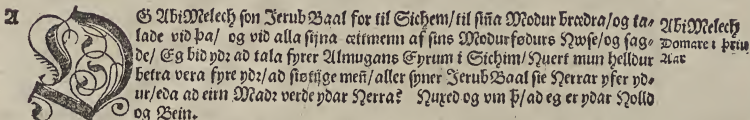 OG AbiMelech son Jerub Baal for til Sichem/til sijna Modur brædra/og ta= AbiMelech
lade vid þa/ og vid alla sijna ættmenn af sins Modurfødurs Hwse/og sag= Domare i þriu
de/ Eg bid ydr ad tala fyrer Almugans Eyrum i Sichim/Huert mun helldur Aar
betra vera fyre ydr/ad siøtige meñ/aller syner Jerub Baal sie Herrar yfer yd=
ur/eda ad eirn Madr verde ydar Herra? Huxed og vm þ/ad eg er ydar Holld
og Bein.